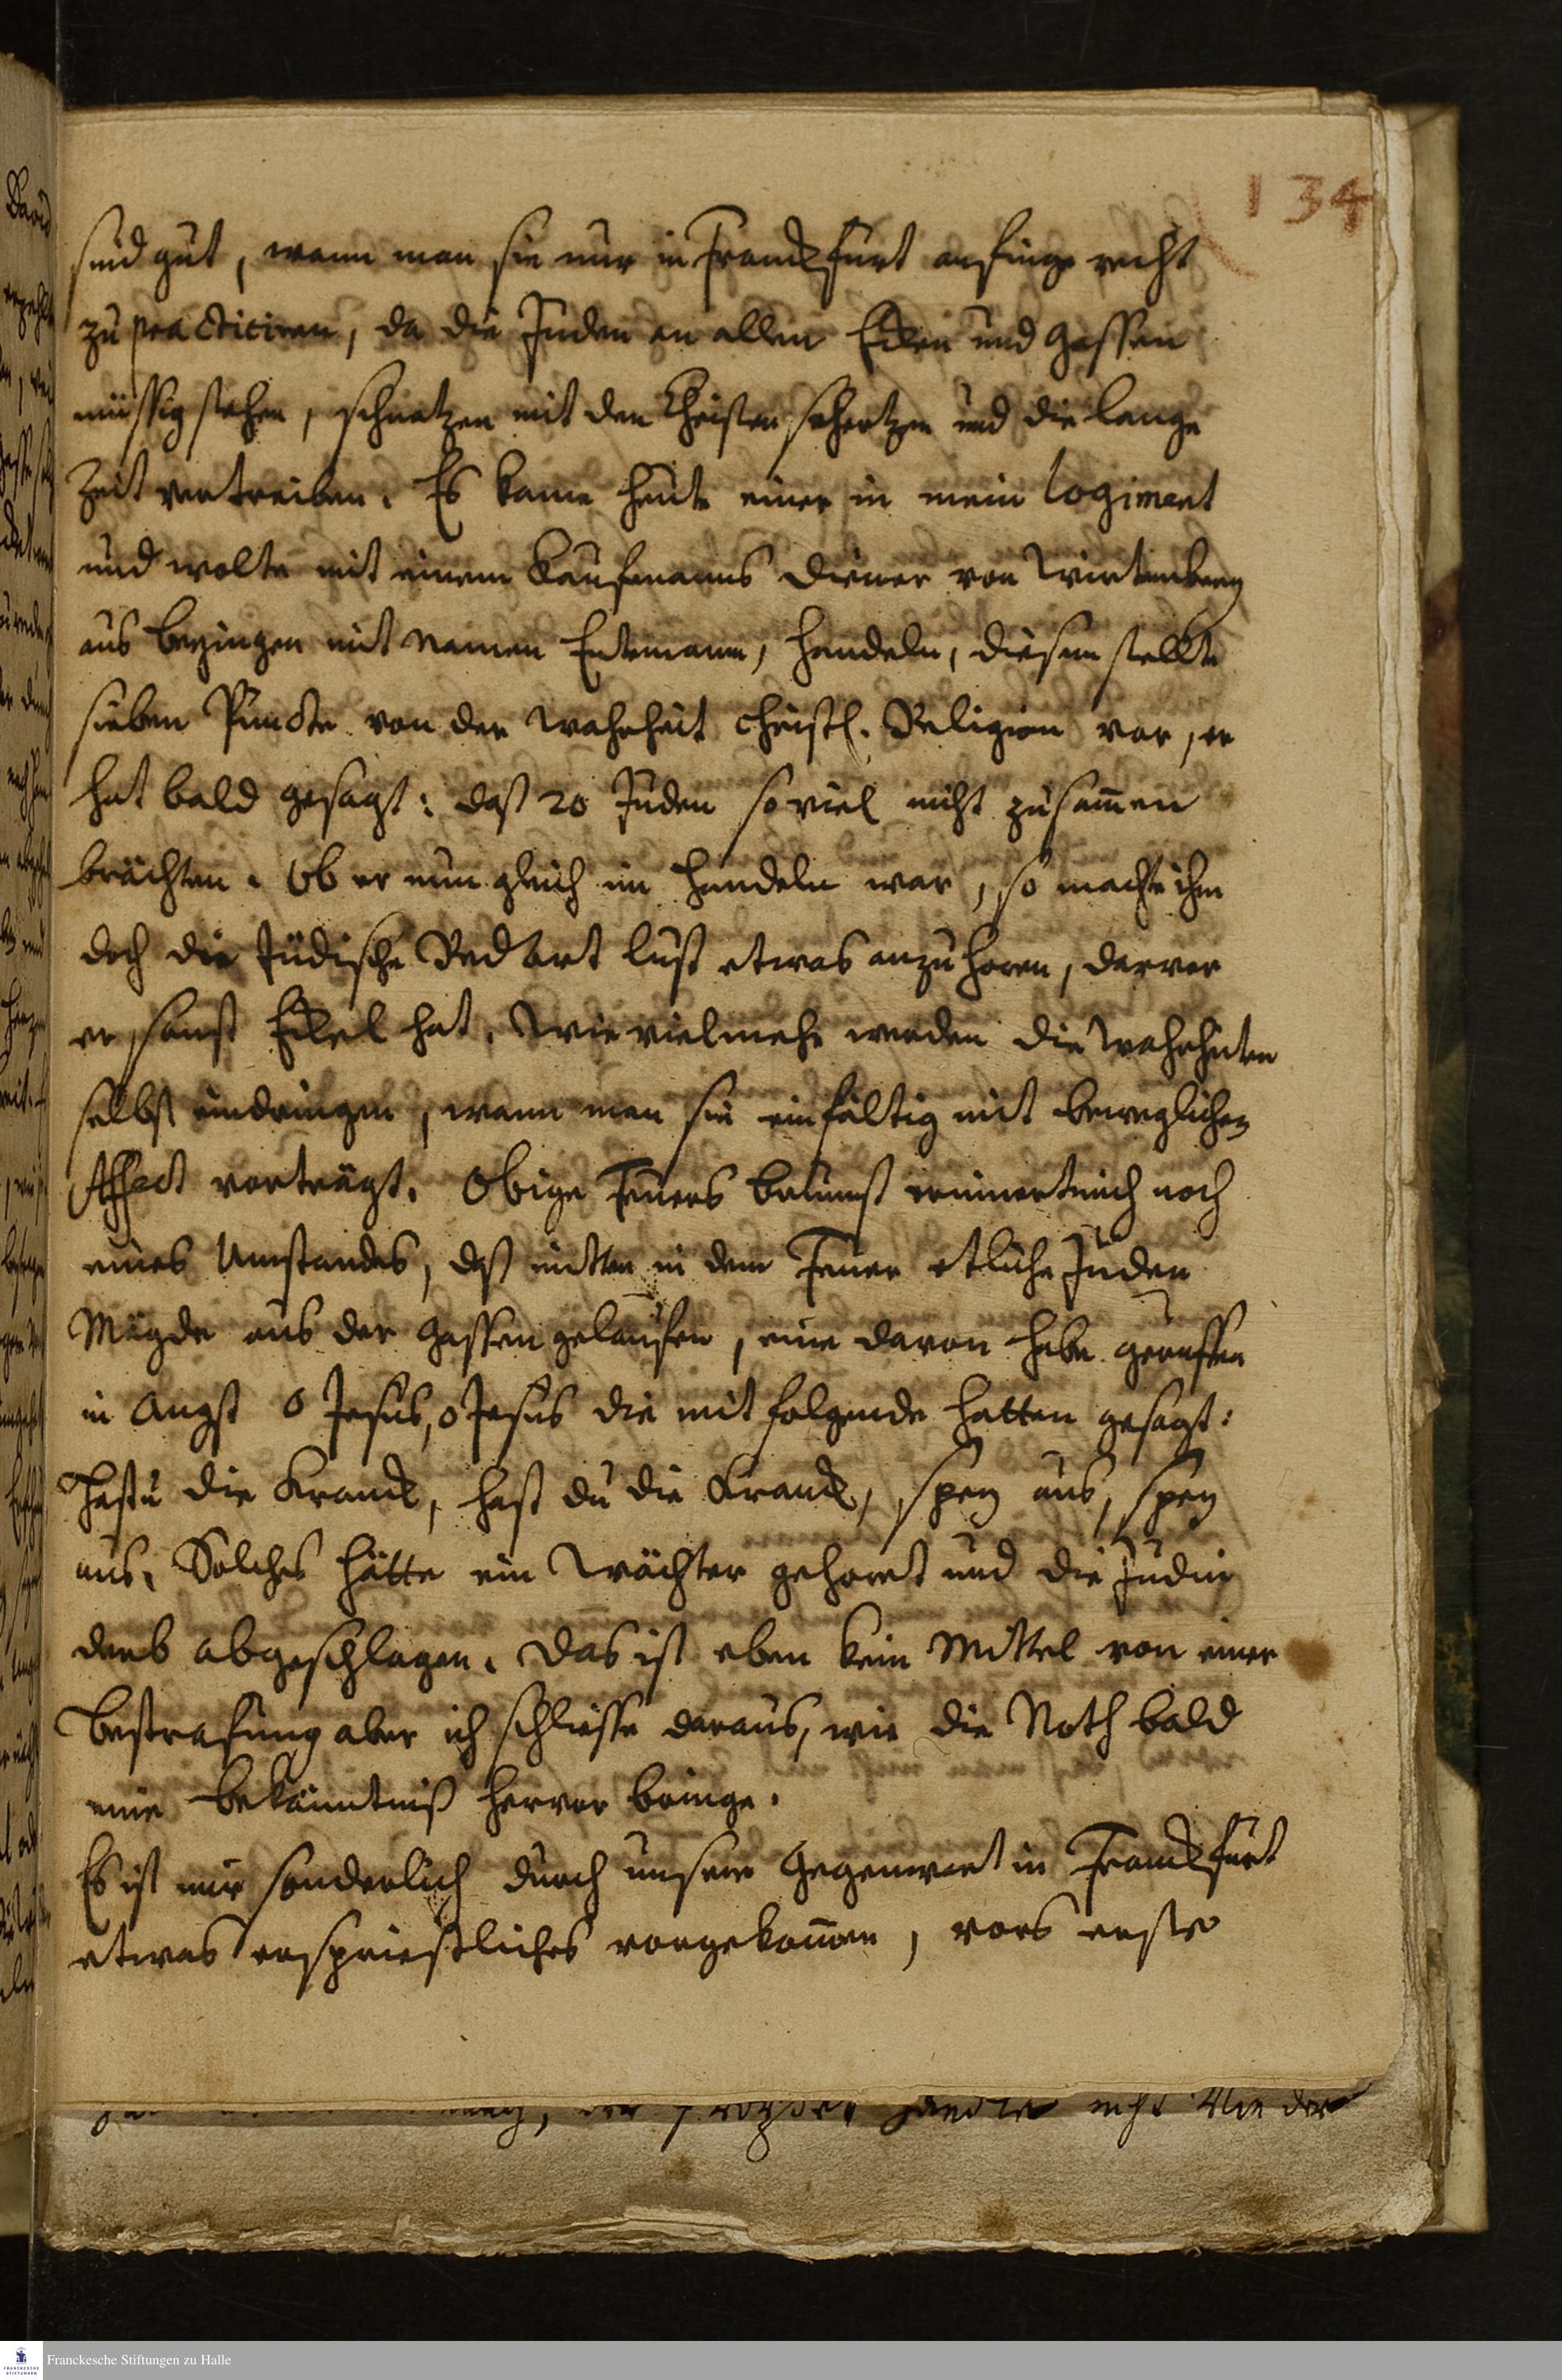 134
sind gut, wann man sie nur in Franckfurt anfinge recht
zu practiciren, da die Juden an allen Ecken und Gassen
müssig stehen, schwatzen mit den Christen schertzen und die lange
Zeit vertreiben. Es kame heute einer in mein Logiment
und wolte mit einem Kaufmanns Diener von Würtemberg
aus mit Namen handeln, diesem stellte
sieben Puncte von der Wahrheit Christl. Religion vor, er
hat bald gesagt: daß 20 Juden so viel nicht zusam̄en
brächten. Ob er nun gleich im Handeln war, so machte ihm
doch die Jüdische Red Art lust etwas anzuhören, darvor
er sonst Eckel hat. Wie vielmehr werden die Wahrheiten
selbst eindringen, wann man sie einfältig mit beweglichen
Affect vorträgt. Obige Feuers Brunst erinnert mich noch
eines Umstandes, daß mitten in dem Feuer etliche Juden
Mägde aus der Gassen gelaufen, eine davon habe geruffen
in Angst o Jesus, o Jesus die mit folgende hatten gesagt:
Hastu die Kranck, hast du die Kranck, spey aus, spey
aus. Solches hätte ein Wächter gehöret und die Judin
derb abgeschlagen. Das ist eben kein Mittel von einer
Bestrafung aber ich schliesse daraus, wie die Noth bald
eine Bekäntniß hervor bringe.
Es ist mir sonderlich durch unsere Gegenwart in Franckfurt
etwas erspriesliches vorgekom̄en, vors erste
nicht Wieder
Franckesche Stiftungen zu Halle